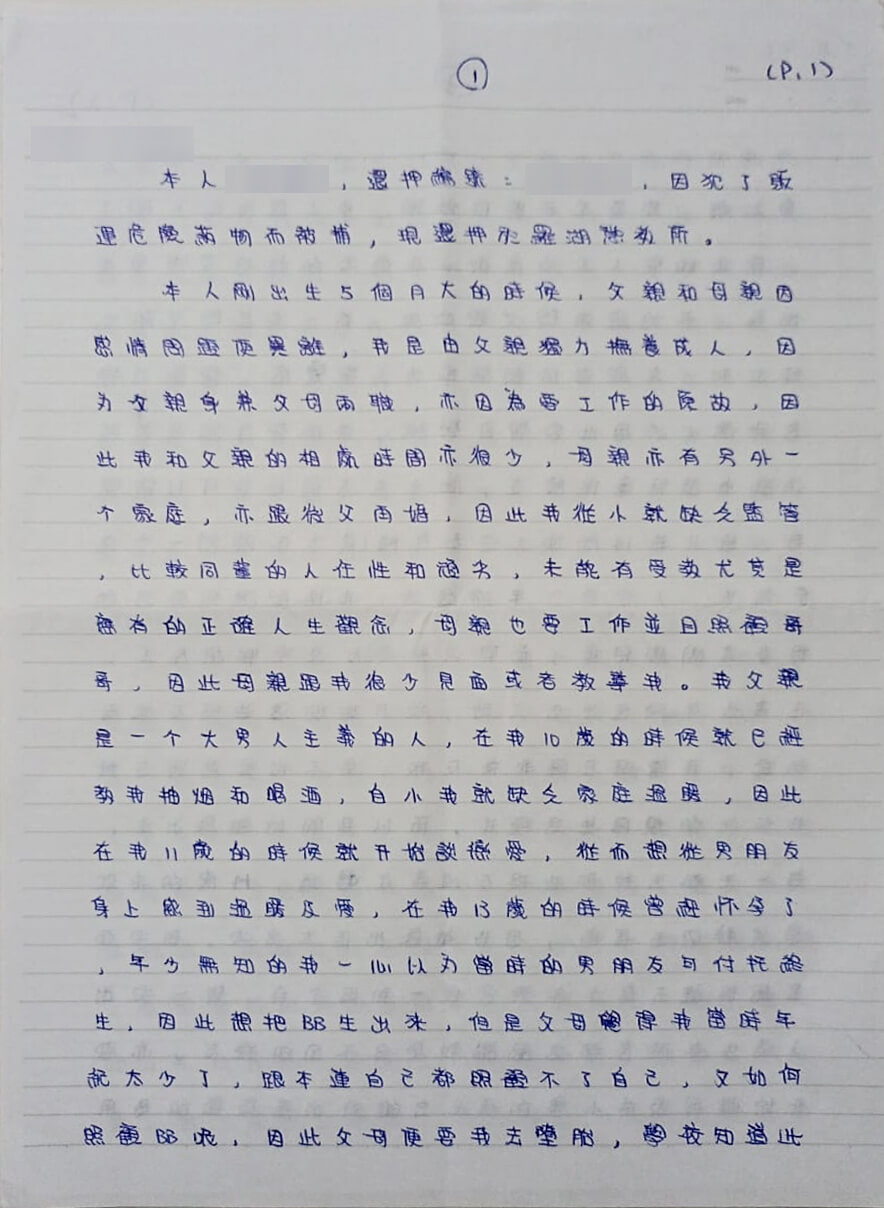 ① (P.1)
本人 ，還押編號： ，因犯了販
運危險藥物而被捕，現還押於羅湖懲教所。
本人剛出生5個月大的時候，父親和母親因
感情問題便異離，我是由父親獨力撫養成人，因
为父親身兼父母兩職，亦因為要工作的原故，因
此我和父親的相處時間亦很少，母親亦有另外一
个家庭，亦跟後父再婚，因此我從小就缺乏監管
，比較同輩的人任性和過失，未能有受教尤其是
應有的正確人生觀念，母親也要工作並且照顧哥
哥，因此母親跟我很少見面或者教導我。我父親
是一个大男人主義的人，在我10歲的時候就已經
教我抽烟和喝酒，自小我就缺乏家庭溫暖，因此
在我11歲的時候就开始談戀愛，從而想從男朋友
身上感到溫暖及愛，在我13歲的時候曾經怀孕了
，年少無知的我一心以为當時的男朋友可付托終
生，因此想把BB生出來，但是父母覺得我當時年
紀太少了，跟本連自己都照顧不了自己，又如何
照顧BB呢，因此父母便要我去墮胎，學校知道此